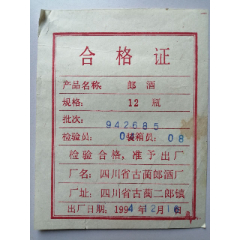 合格证
产品名称: 郎酒
规格: 12 瓶
批次: 942685
检验员: 04 装箱员: 08
检验合格,准予出厂
厂名: 四川省古蔺郎酒厂
厂址: 四川省古蔺二郎镇
出厂日期: 1994年12月1